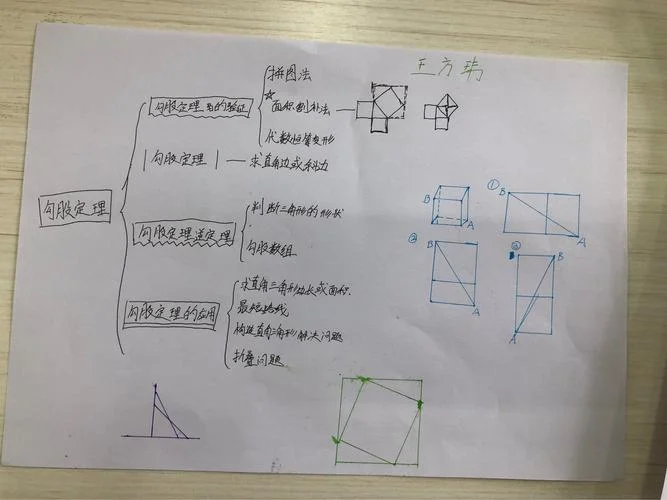 王方玮
勾股定理
勾股定理的验证
拼图法
☆面积割补法
代数恒等变形
勾股定理
求直角边或斜边
勾股定理逆定理
判断三角形的形状
勾股数组
勾股定理的应用
求直角三角形边长或面积
最短路线
构造直角三角形解决问题
折叠问题
B
A
①
B
A
②
B
A
③
B
A